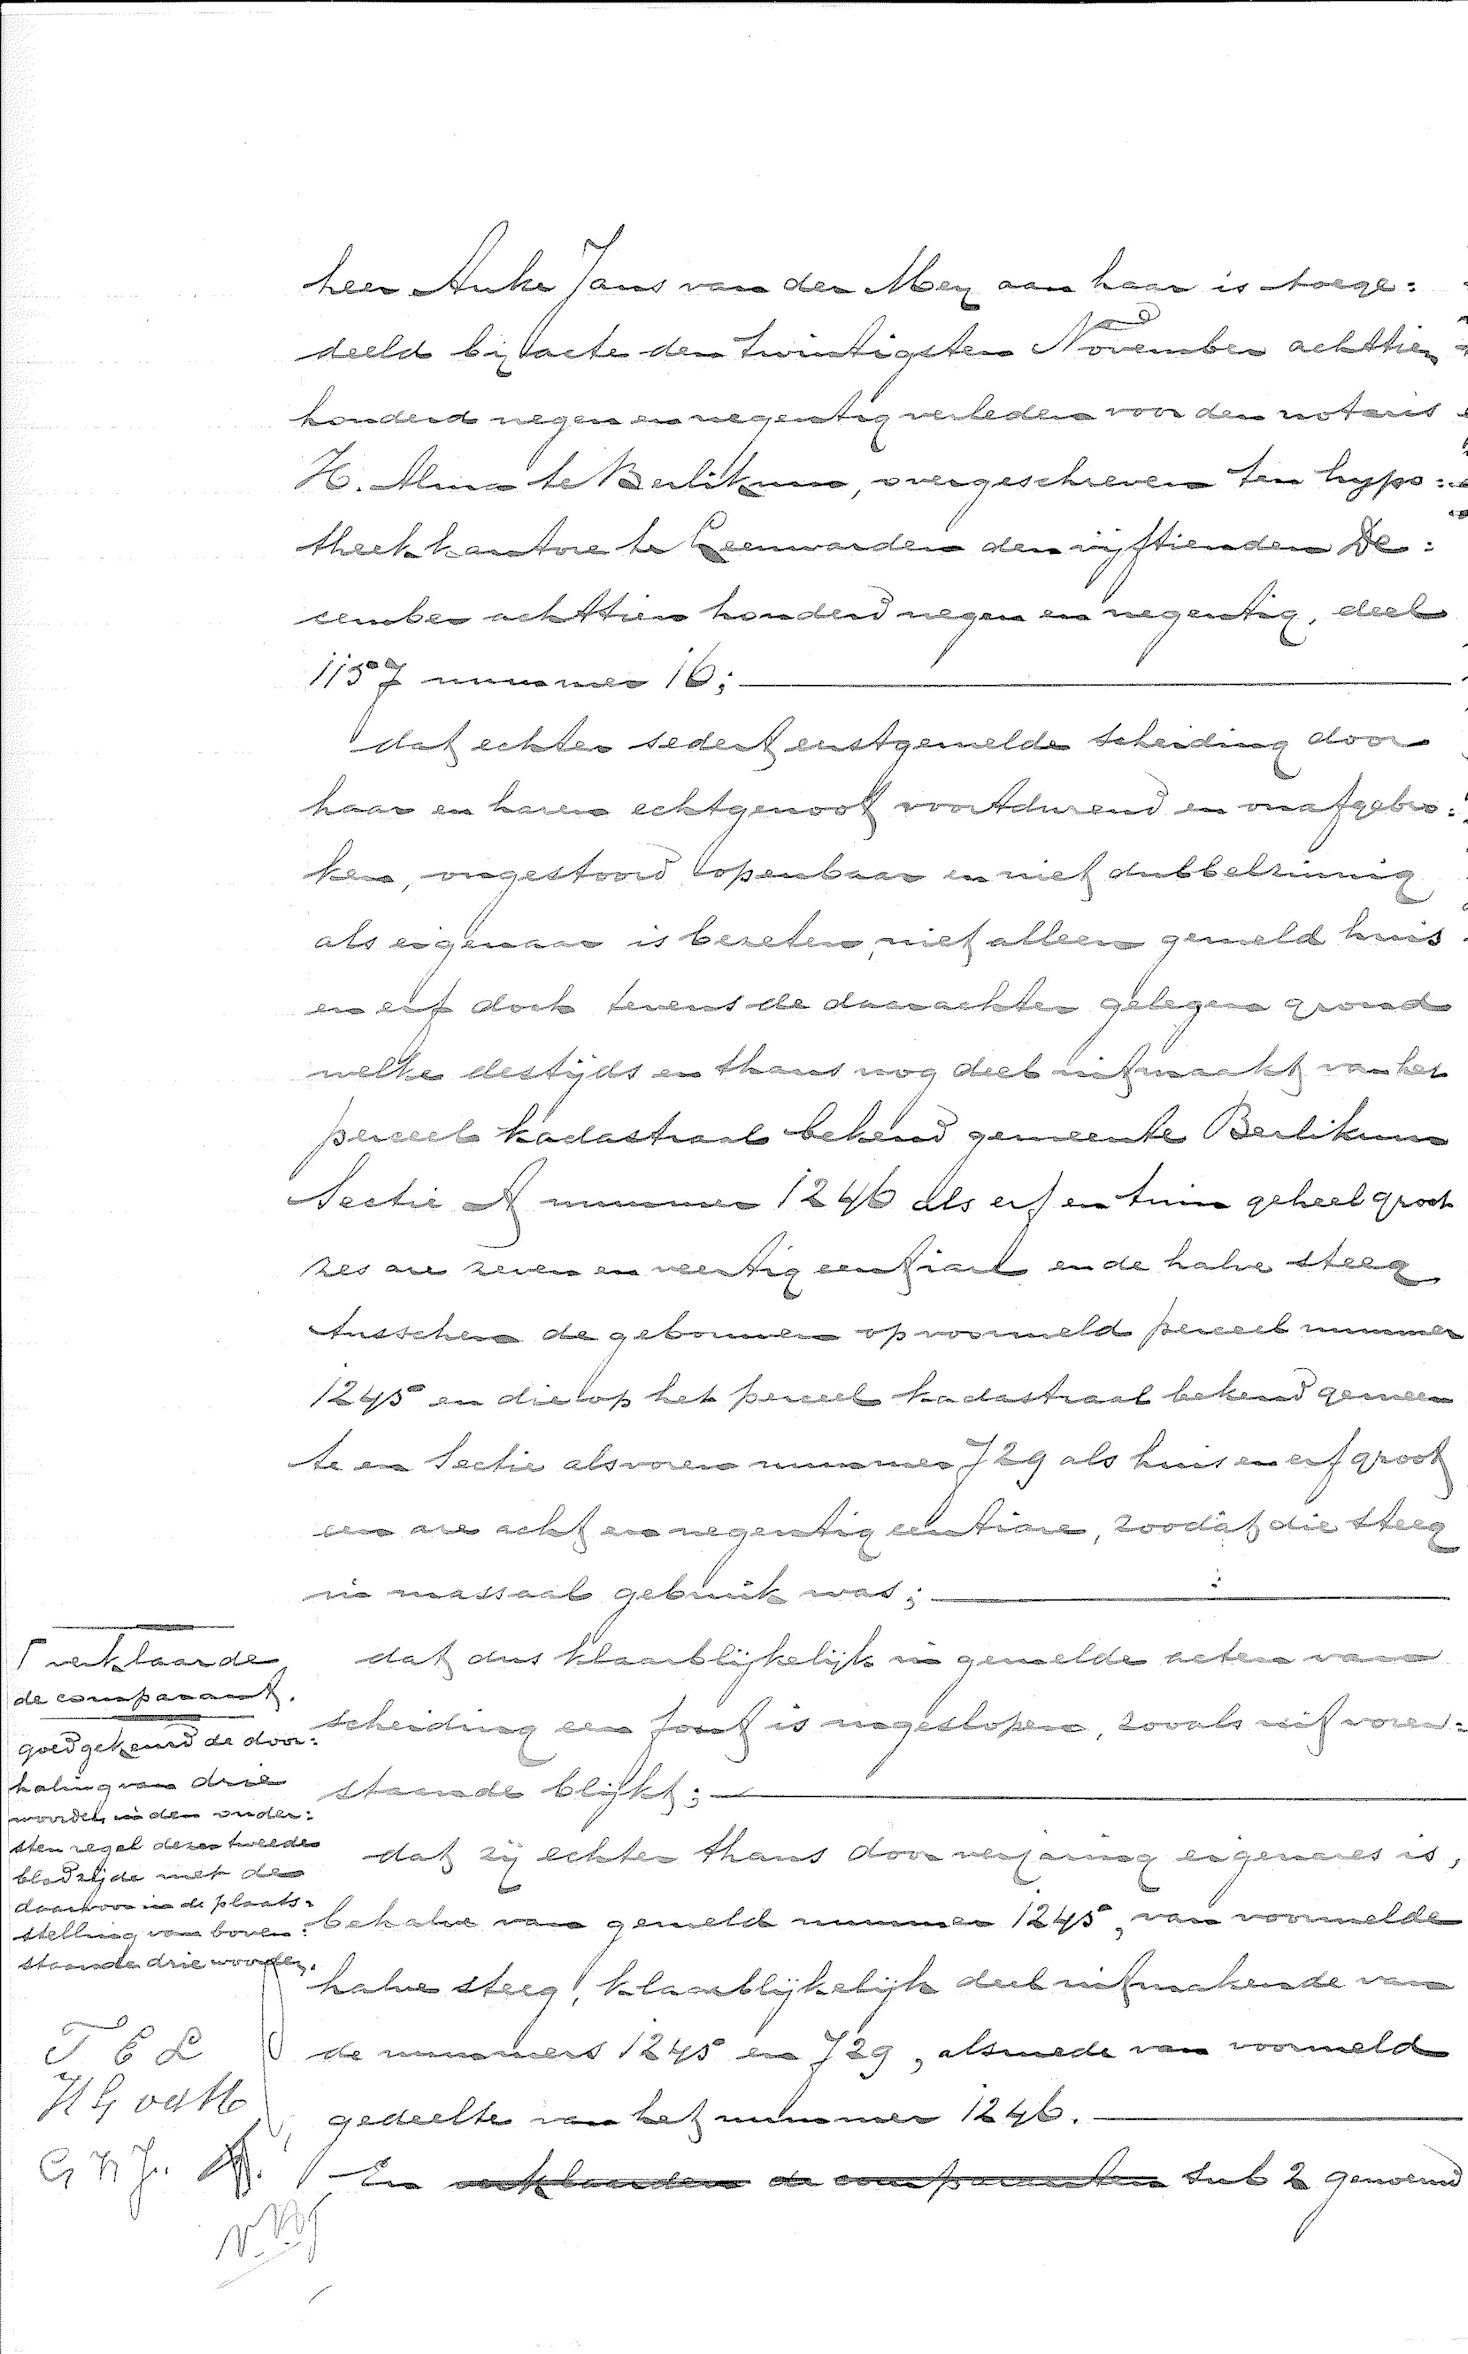 heer Anke Jans van der Meij aan haar is toege:
deeld bij acte den twintigsten November achttien
honderd negen en negentig verleden voor den notaris
H. Alma te Berlikum, overgeschreven ten hypo:
theekkantore te Leeuwarden den vijftienden De:
cember achttien honderd negen en negentig, deel
1157 nummer 16;
dat echter sedert eerstgemelde scheiding door
haar en haren echtgenoot voortdurend en onafgebro:
ken, ongestoord openbaar en niet dubbelzinnig
als eigenaar is bezeten, niet alleen gemeld huis
en erf doch tevens de daarachter gelegen grond
welke destijds en thans nog deel uitmaakt van het
perceel kadastraal bekend gemeente Berlikum
Sectie A nummer 1246 als erf en tuin geheel groot
zes are zeven en veertig centiare en de halve steeg
tusschen de gebouwen op voormeld perceel nummer
1245 en die op het perceel kadastraal bekend gemeen
te en Sectie alsvoren nummer 729 als huis en erf groot
een are acht en negentig centiare, zoodat die steeg
in massaal gebruik was;
dat dus klaarblijkelijk in gemelde acten van
scheiding een fout is ingeslopen, zooals uit voren:
staande blijkt;
dat zij echter thans door verjaring eigenares is,
behalve van gemeld nummer 1245, van voormelde
halve steeg, klaarblijkelijk deel uitmakende van
de nummers 1245 en 729, alsmede van voormeld
gedeelte van het nummer 1246.
En verklaarden de comparanten sub 2 genoemd
verklaarde
de comparant.
goedgekeurd de door:
haling van drie
woorden in den onder:
sten regel dezer tweede
bladzijde met de
daarvoor in de plaats:
stelling van boven:
staande drie woorden.
T E L
HG vdM
G H Jr.